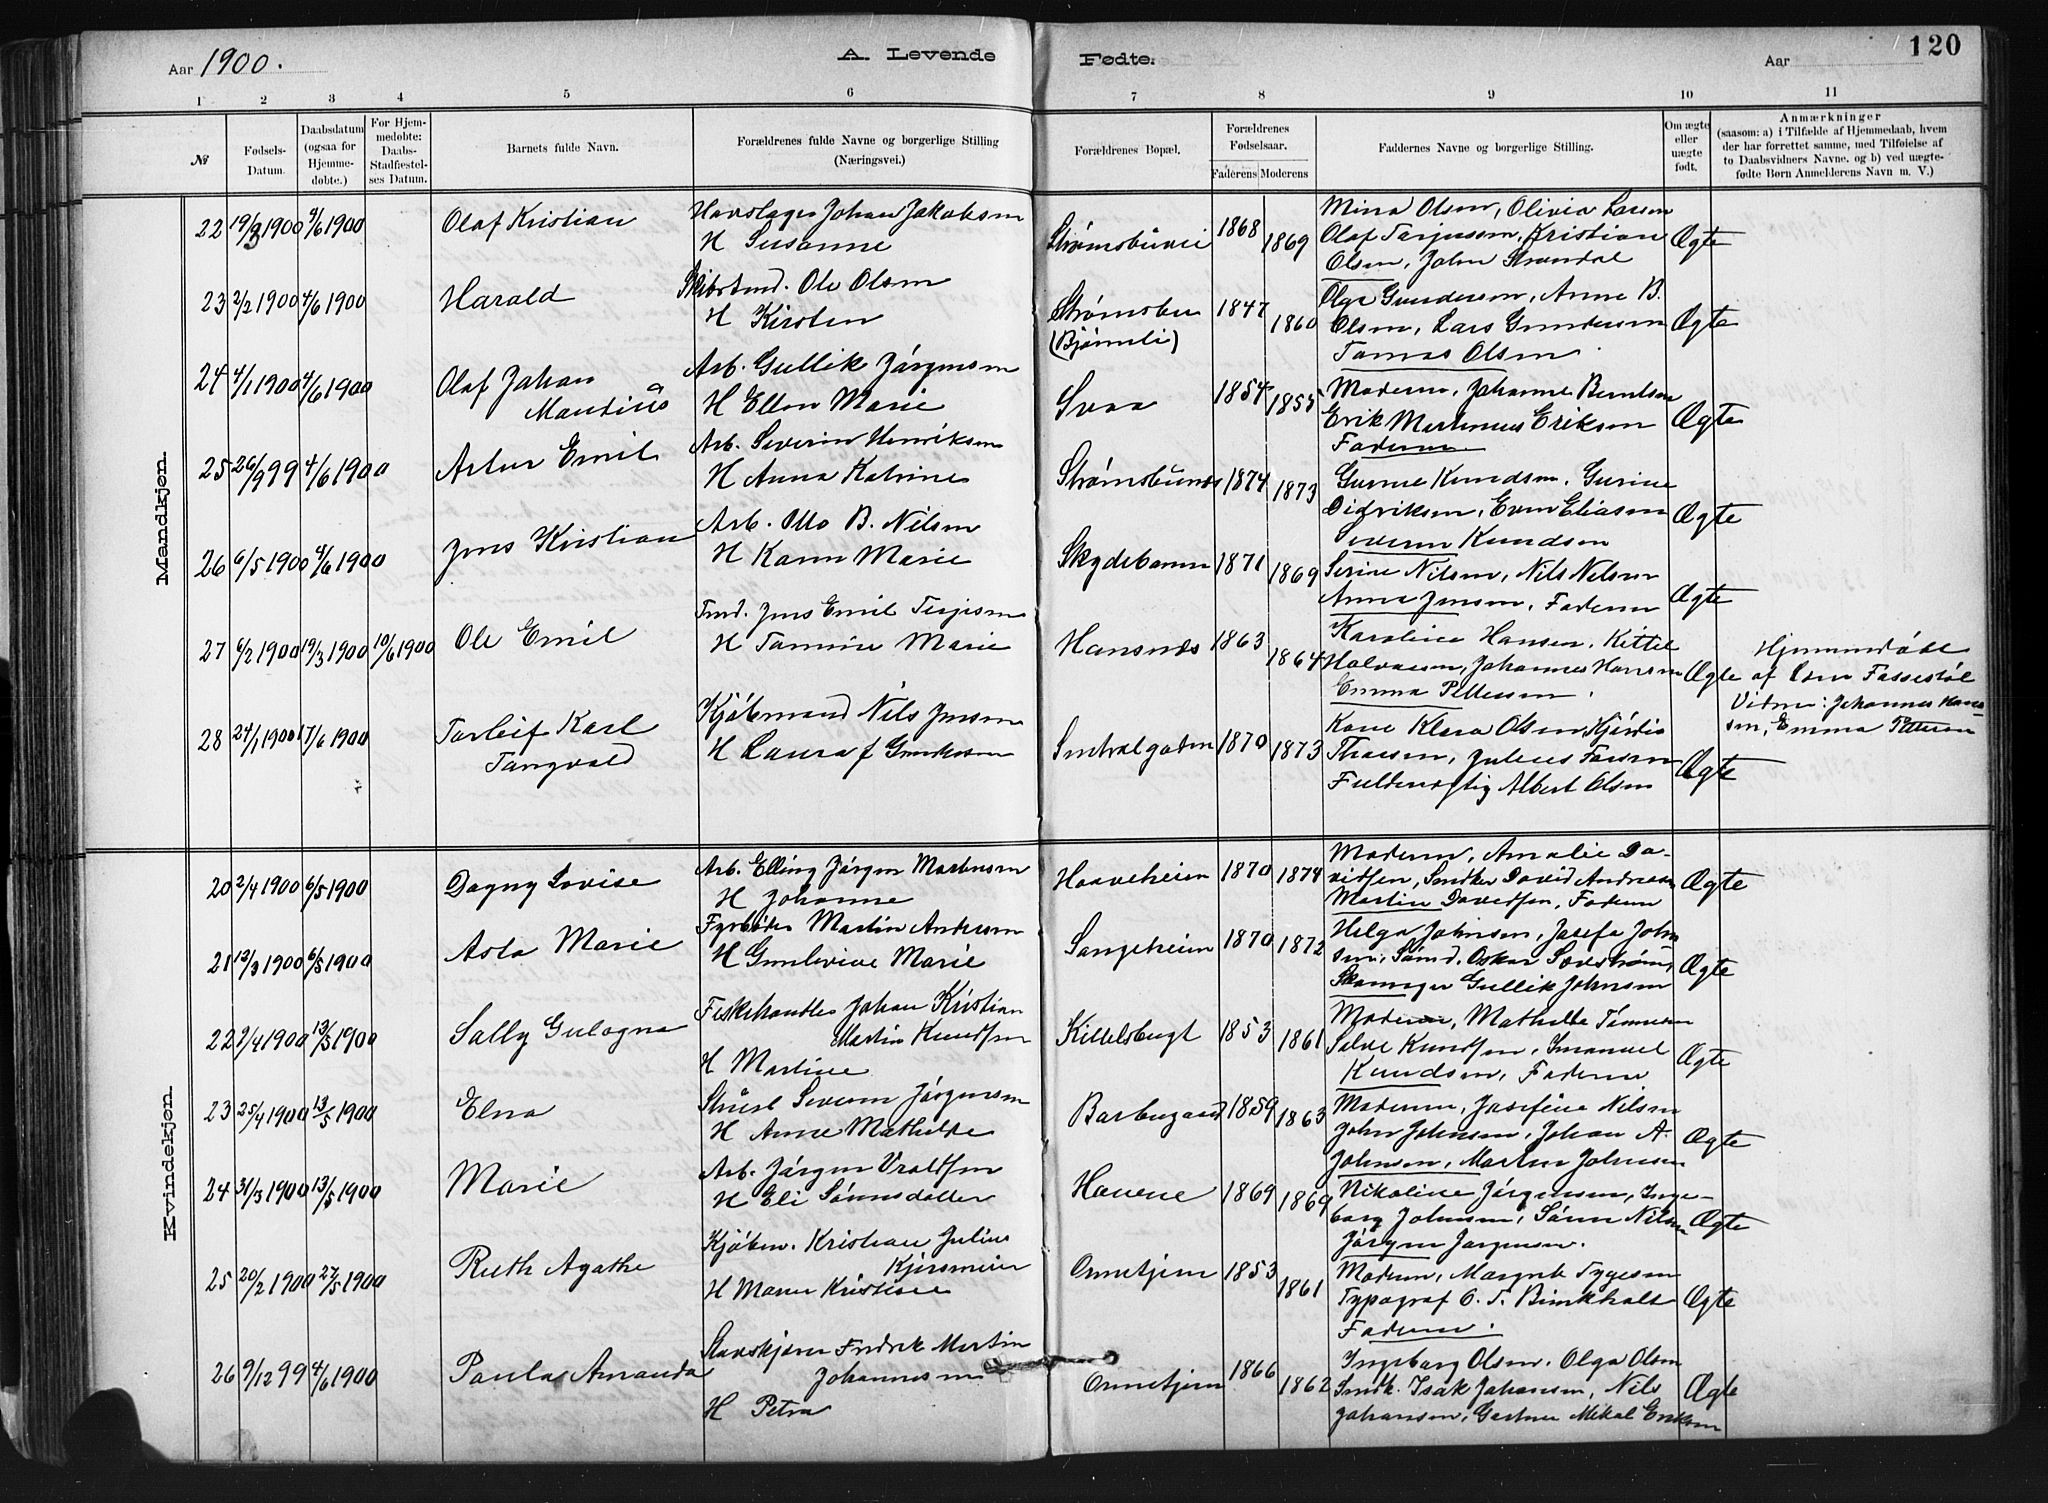 Aar 1900.
A. Levende Fødte.
Aar
120
1 2 3 4 5 6 7 8 9 10 11
№
Fødsels-Datum.
Daabsdatum (ogsaa for Hjemme-døbte.)
For Hjem-medøbte: Daabs-Stadfæstel-ses Datum.
Barnets fulde Navn.
Forældrenes fulde Navne og borgerlige Stilling (Næringsvei.)
Forældrenes Bopæl.
Forældrenes Fødselsaar.
Faderens Moderens
Faddernes Navne og borgerlige Stilling.
Om ægte eller uægte født.
Anmærkninger
(saasom: a) i Tilfælde af Hjemmedaab, hvem der har forrettet samme, med Tilføielse af to Daabsvidners Navne. og b) ved uægte-fødte Børn Anmelderens Navn m. V.)
Mandkjøn.
22 19/3 1900 4/6 1900 Olaf Kristian
Johan Jakobsen
H Susanne
Strømsbuvei 1868 1869
Mina Olsen, Olivia Larsen
Olaf Terjesen, Kristian
Olsen, John Strandal
Ægte
23 2/2 1900 4/6 1900 Harald
Ole Olsen
H Kirsten
Strømsbu
(Bjørnli)
1847 1860
Olga Gundersen, Anne B.
Olsen, Lars Gundersen
Tomas Olsen
Ægte
24 4/1 1900 4/6 1900 Olaf Johan
Mantinus
Arb. Gullik Jørgensen
H Ellen Marie
Svaa 1854 1855
Moderen, Johanne Berntsen
Erik Martinius Eriksen
Faderen
Ægte
25 26/9 99 4/6 1900 Artur Emil
Arb. Severin Henriksen
H Anna Katrine
Strømsbunes 1874 1873
Gunne Knudsen, Gurine
Didriksen, Even Eliasen
Severin Knudsen
Ægte
26 6/5 1900 4/6 1900 Jens Kristian
Arb. Otto B. Nilsen
H Karen Marie
Skydebanen 1871 1869
Serine Nilsen, Nils Nilsen
Anna Jensen, Faderen
Ægte
27 6/2 1900 19/3 1900 10/6 1900 Ole Emil
Tmd. Jens Emil Terjesen
H Tomine Marie
Hansnes 1863 1864
Karoline Hansen, Kittel
Halvorsen, Johannes Hansen
Emma Pettersen.
Ægte
Hjemmedøbt
af Lom Fossestøl
Vidner: Johannes Han-
sen, Emma Pettersen
28 24/1 1900 17/6 1900 Torleif Karl
Tangvald
Kjøbmand Nils Jensen
H Laura f Gundersen
Sentralgaten 1870 1873
Kone Klara Olsen,
Julius Larsen
Fuldmægtig Albert Olsen
Ægte
Kvindekjøn.
20 2/4 1900 6/5 1900 Dagny Lovise
Arb. Elling Jørgen Mortensen
H Johanne
Haaveheien 1870 1874
Moderen, Amalie Da-
vidsen, Snedker David Andreasen
Martin Davidsen, Faderen
Ægte
21 12/3 1900 6/5 1900 Asta Marie
Fyrbøder Martin Andersen
H Gunlevine Marie
Songeheien 1870 1872
Helga Johnsen, Josefa John-
sen, Sømd. Oskar
Skomager Gullik Johnsen
Ægte
22 2/4 1900 13/5 1900 Sally Gulogna
Fiskehandler Johan Kristian
Martin Knudsen
H Martine
Kittelsbugt 1853 1861
Moderen, Mathilde Tønnesen
Salve Knudsen, Imanuel
Knudsen, Faderen
Ægte
23 25/4 1900 13/5 1900 Elna
Severin Jørgensen
H Anne Mathilde
Barbugaard 1859 1863
Moderen, Josefine Nilsen
John Johnsen, Johan A.
Johnsen, Martin Johnsen
Ægte
24 31/3 1900 13/5 1900 Marie
Arb. Jørgen Vraldsen
H Eli Sønnsdatter
Havene 1869 1869
Nikoline Jørgensen, Inge-
borg Johnsen, Søren Nilsen
Jørgen Jørgensen.
Ægte
25 20/2 1900 27/5 1900 Ruth Agathe
Kjøbm. Kristian Julius
Kjørsmeier
H Maren Kristine
Omnstjern 1853 1861
Moderen, Margrete Tygesen
Typograf O. T. Birkholt
Faderen.
Ægte
26 9/12 99 4/6 1900 Paula Amanda
Fredrik Martin
Johannesen
H Petra
Omnstjern 1866 1862
Ingeborg Olsen, Olga Olsen
Snedk. Isak Johansen, Nils
Johansen, Gartner Mikal Eriksen
Ægte